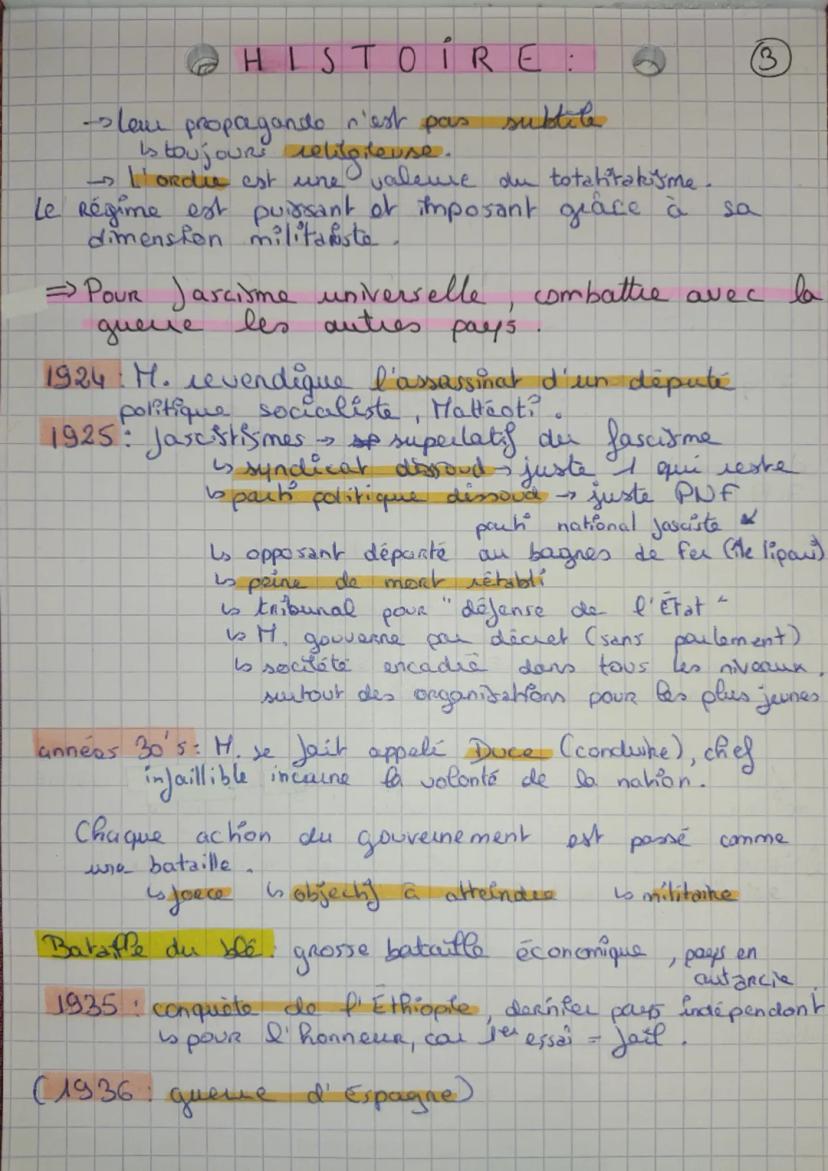 HISTOIRE :
3
→ leur propagande n'est pas subtile
↳ toujours religieuse.
→ L'ordre est une valeure du totalitarisme.
Le Régime est puissant et imposant grâce à sa
dimension militariste.
⇒ Pour fascisme universelle, combattre avec la
guerre les autres pays.
1924 : M. revendique l'assassinat d'un député
politique socialiste, Mattéoti.
1925 : fascistismes → superlatif du fascisme
↳ syndicat dissoud → juste 1 qui reste
↳ parti politique dissoud → juste PNF
parti national fasciste
↳ opposant déporté au bagnes de fer (île lipari)
↳ peine de mort rétabli
↳ tribunal pour "défense de l'État"
↳ M. gouverne par décret (sans parlement)
↳ société encadré dans tous les niveaux,
surtout des organisations pour les plus jeunes
années 30's : M. se fait appelé Duce (conduire), chef
infaillible incarne la volonté de la nation.
Chaque action du gouvernement est passé comme
une bataille.
↳ force ↳ objectif à atteindre ↳ militaire
Bataille du blé : grosse bataille économique, pays en
autarcie
1935 : conquête de l'Éthiopie, dernier pays indépendant
↳ pour l'honneur, car 1er essai = fail.
(1936 : guerre d'Espagne)